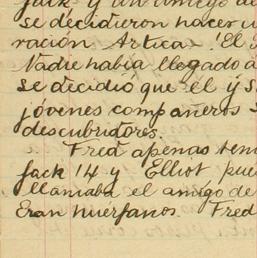 Jack y un amigo de
se decidieron hacer u
ración Artica. ! El
Nadie había llegado a
se decidió que el y s
jóvenes compañeros s
descubridores.
Fred apenas ten
Jack 14 y Elliot pue
llamaba el amigo de
Eran huerfanos. Fred